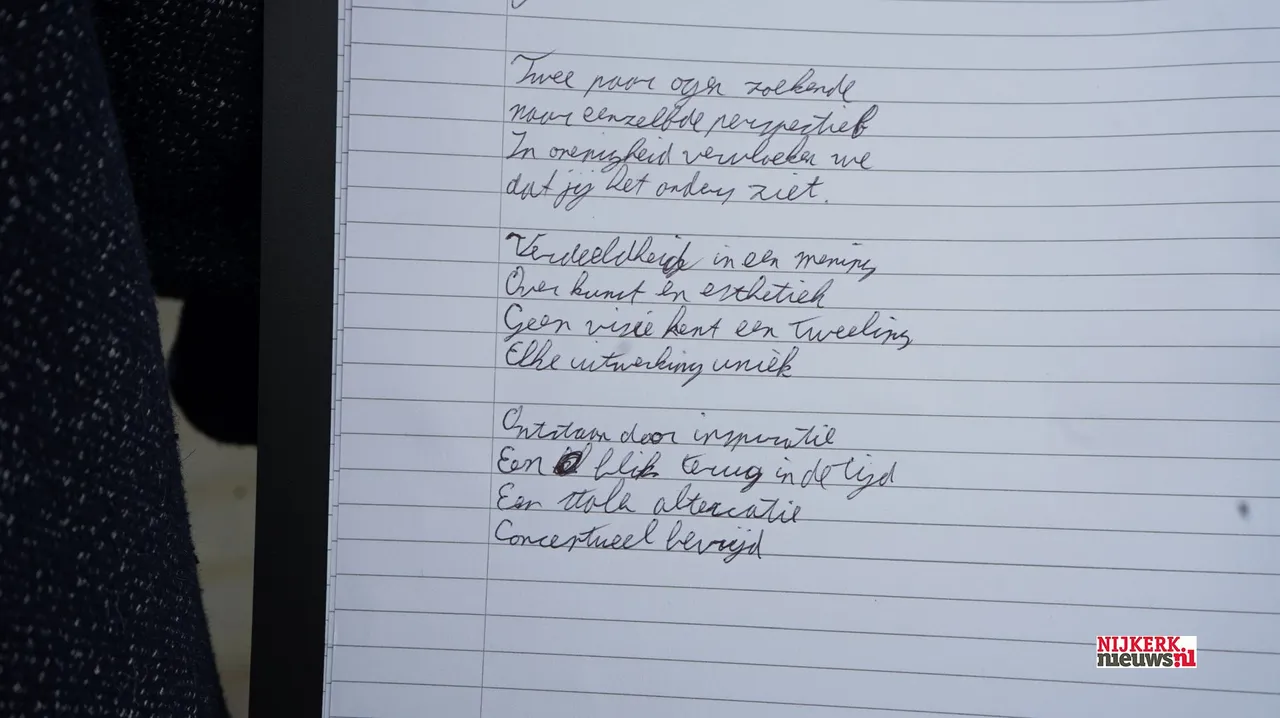 Twee paar ogen zoekende
naar eenzelfde perspectief
In onenigheid vervloeken we
dat jij het anders ziet.
Verdeeldheid in een mening
Over kunst en esthetiek
Geen visie kent een tweeling
Elke uitwerking uniek
Ontstaan door inspiratie
Een blik terug in de tijd
Een altercatie
Conceptueel bevrijd
NIJKERK
nieuws.nl